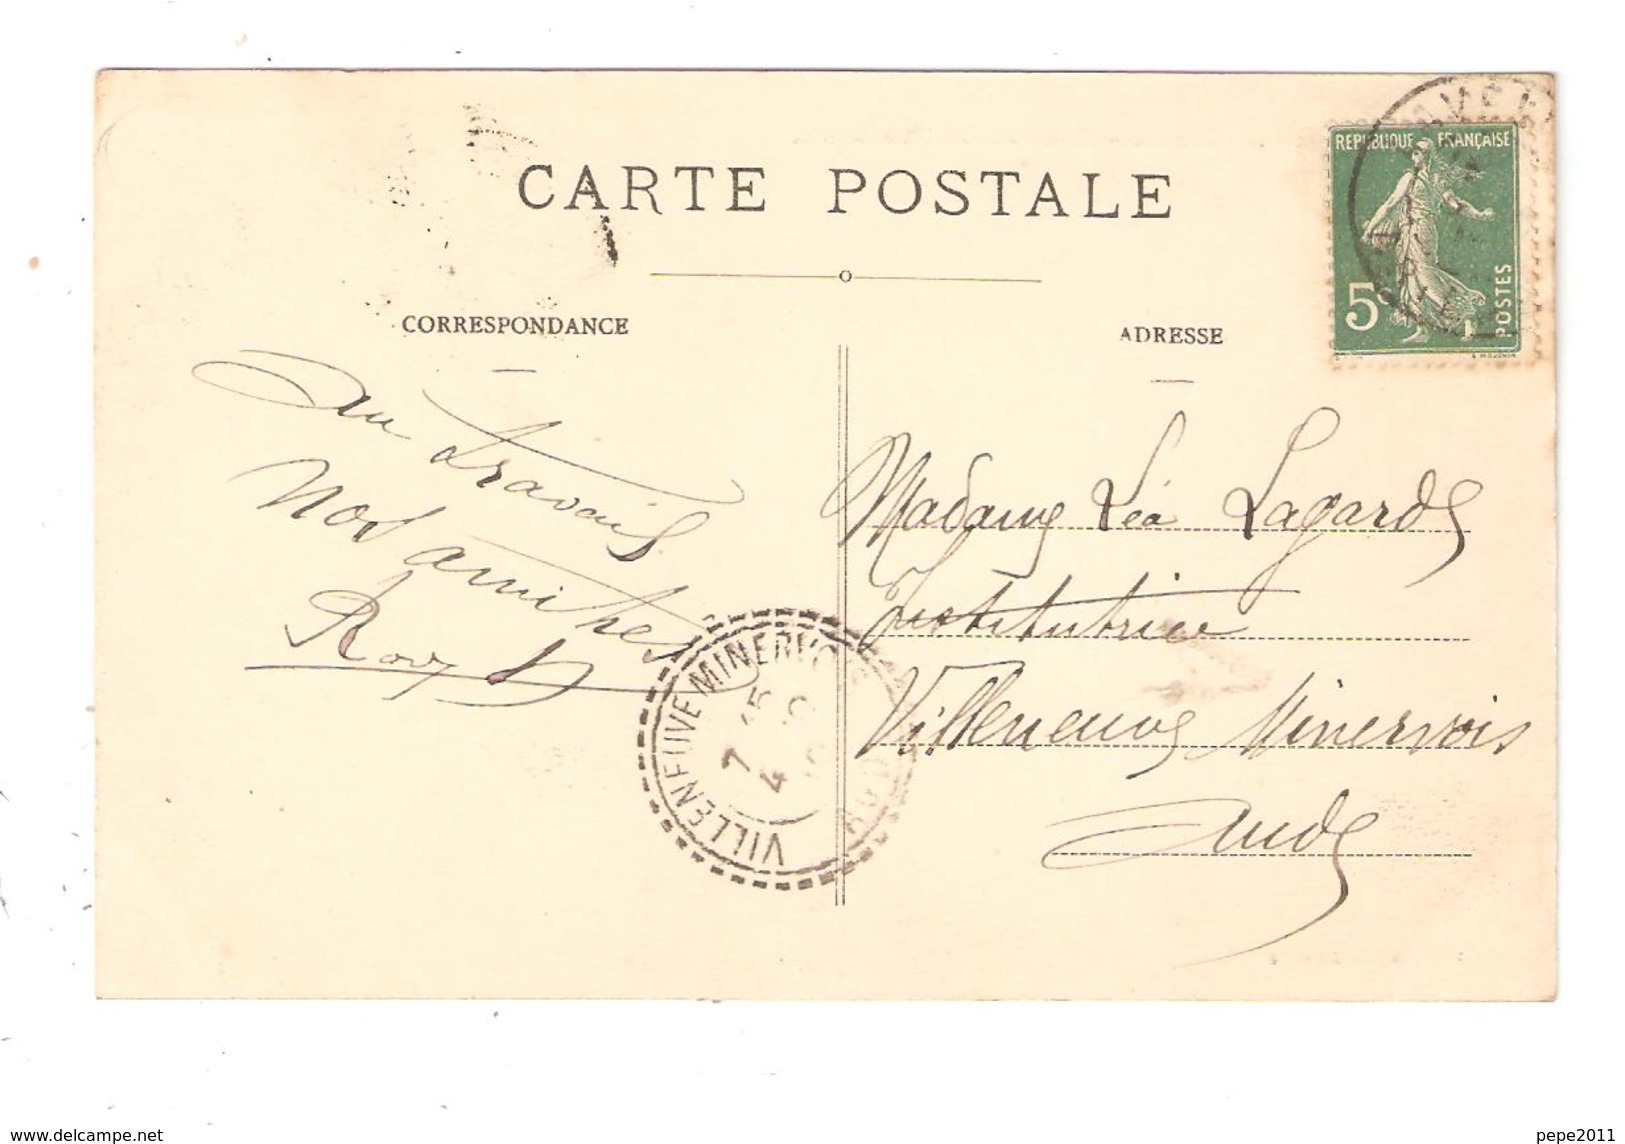 CARTE POSTALE
CORRESPONDANCE
Au travail
Nos amitiés
ADRESSE
REPUBLIQUE FRANÇAISE
5c
POSTES
Madame Léa Lagarde
Institutrice
Villeneuve Minervois
Aude
VILLENEUVE-MINERVOIS
www.delcampe.net
pepe2011